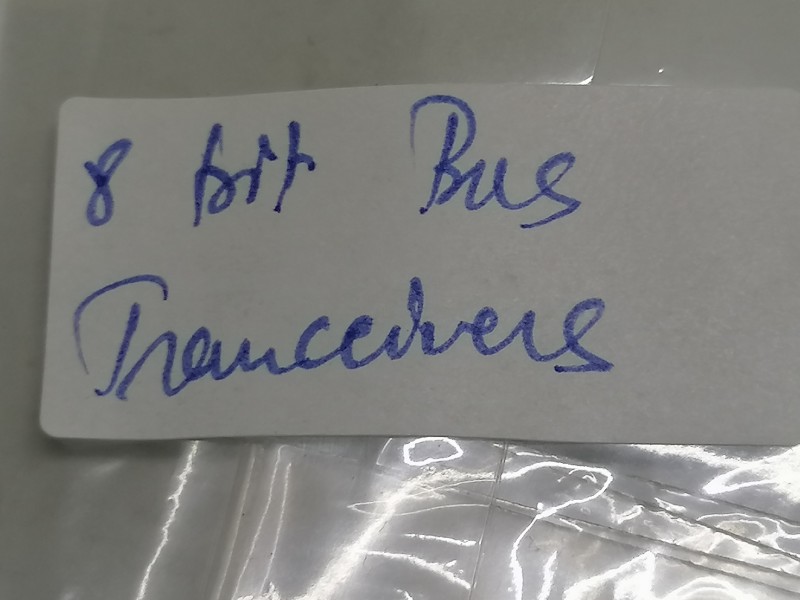 8 bit Bus
Tranceivers